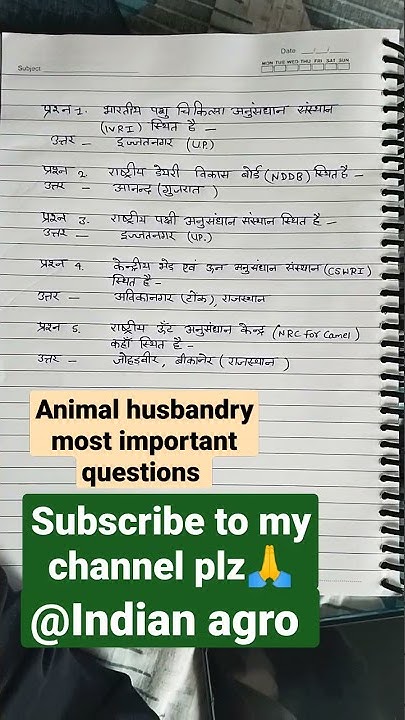 Date __/__/__
Subject
MON TUE WED THU FRI SAT SUN
प्रश्न 1. भारतीय पशु चिकित्सा अनुसंधान संस्थान
(IVRI) स्थित है –
उत्तर – इज्जतनगर (U.P.)
प्रश्न 2. राष्ट्रीय डेयरी विकास बोर्ड (NDDB) स्थित है –
उत्तर – आनन्द (गुजरात)
प्रश्न 3. राष्ट्रीय पक्षी अनुसंधान संस्थान स्थित है –
उत्तर – इज्जतनगर (UP.)
प्रश्न 4. केन्द्रीय भेड एवं ऊन अनुसंधान संस्थान (CSWRI)
स्थित है –
उत्तर – अविकानगर (टोंक), राजस्थान
प्रश्न 5. राष्ट्रीय ऊँट अनुसंधान केन्द्र (NRC for Camel)
कहाँ स्थित है –
उत्तर – जोहडबीर, बीकानेर (राजस्थान)
Animal husbandry
most important
questions
Subscribe to my
channel plz🙏
@Indian agro